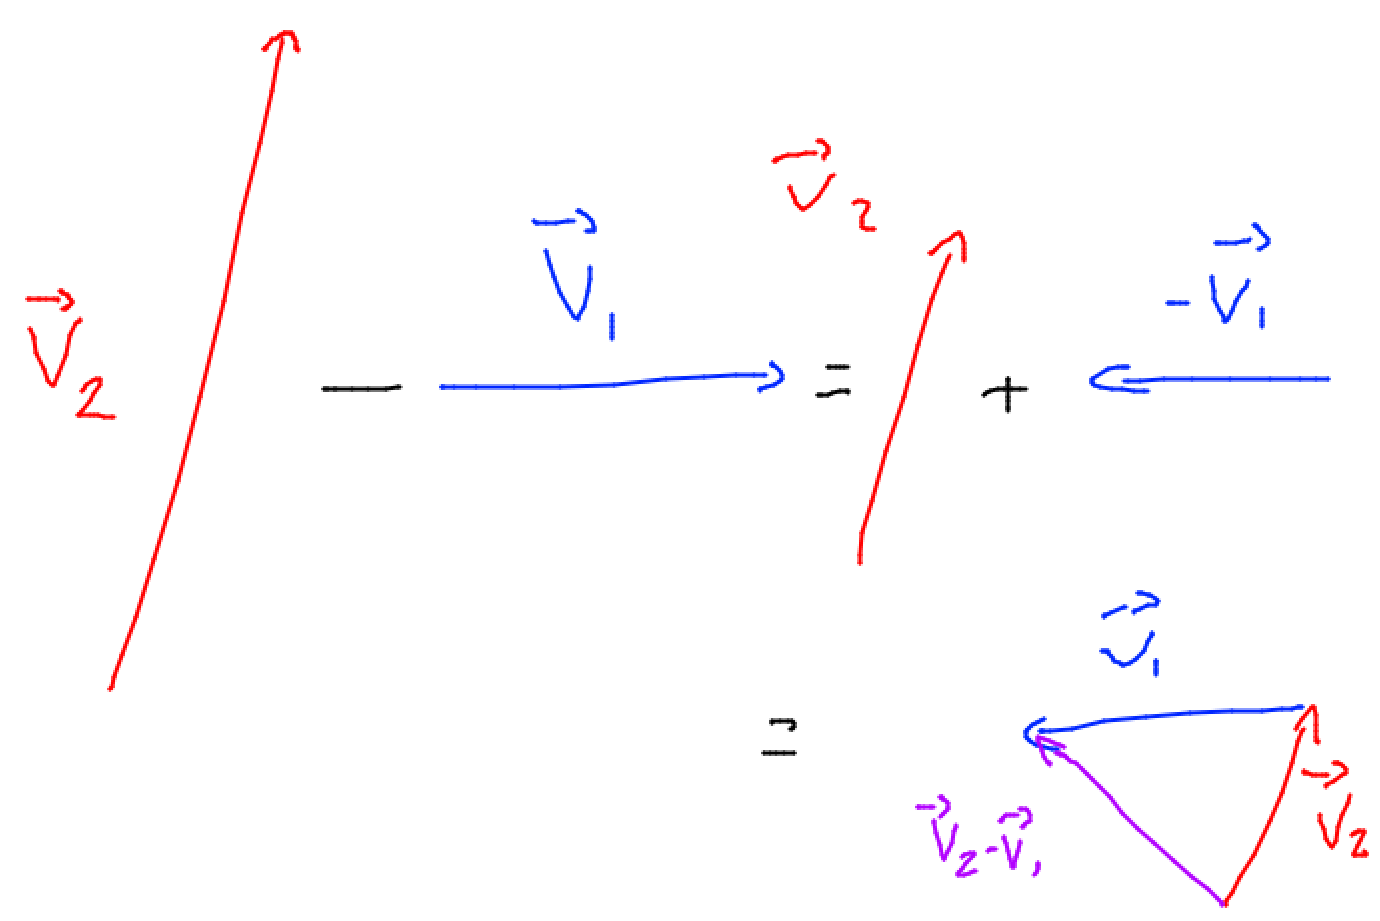 V⃗₂ — V⃗₁ = V⃗₂ + -V⃗₁
= V⃗₁
V⃗₂-V⃗₁ V⃗₂